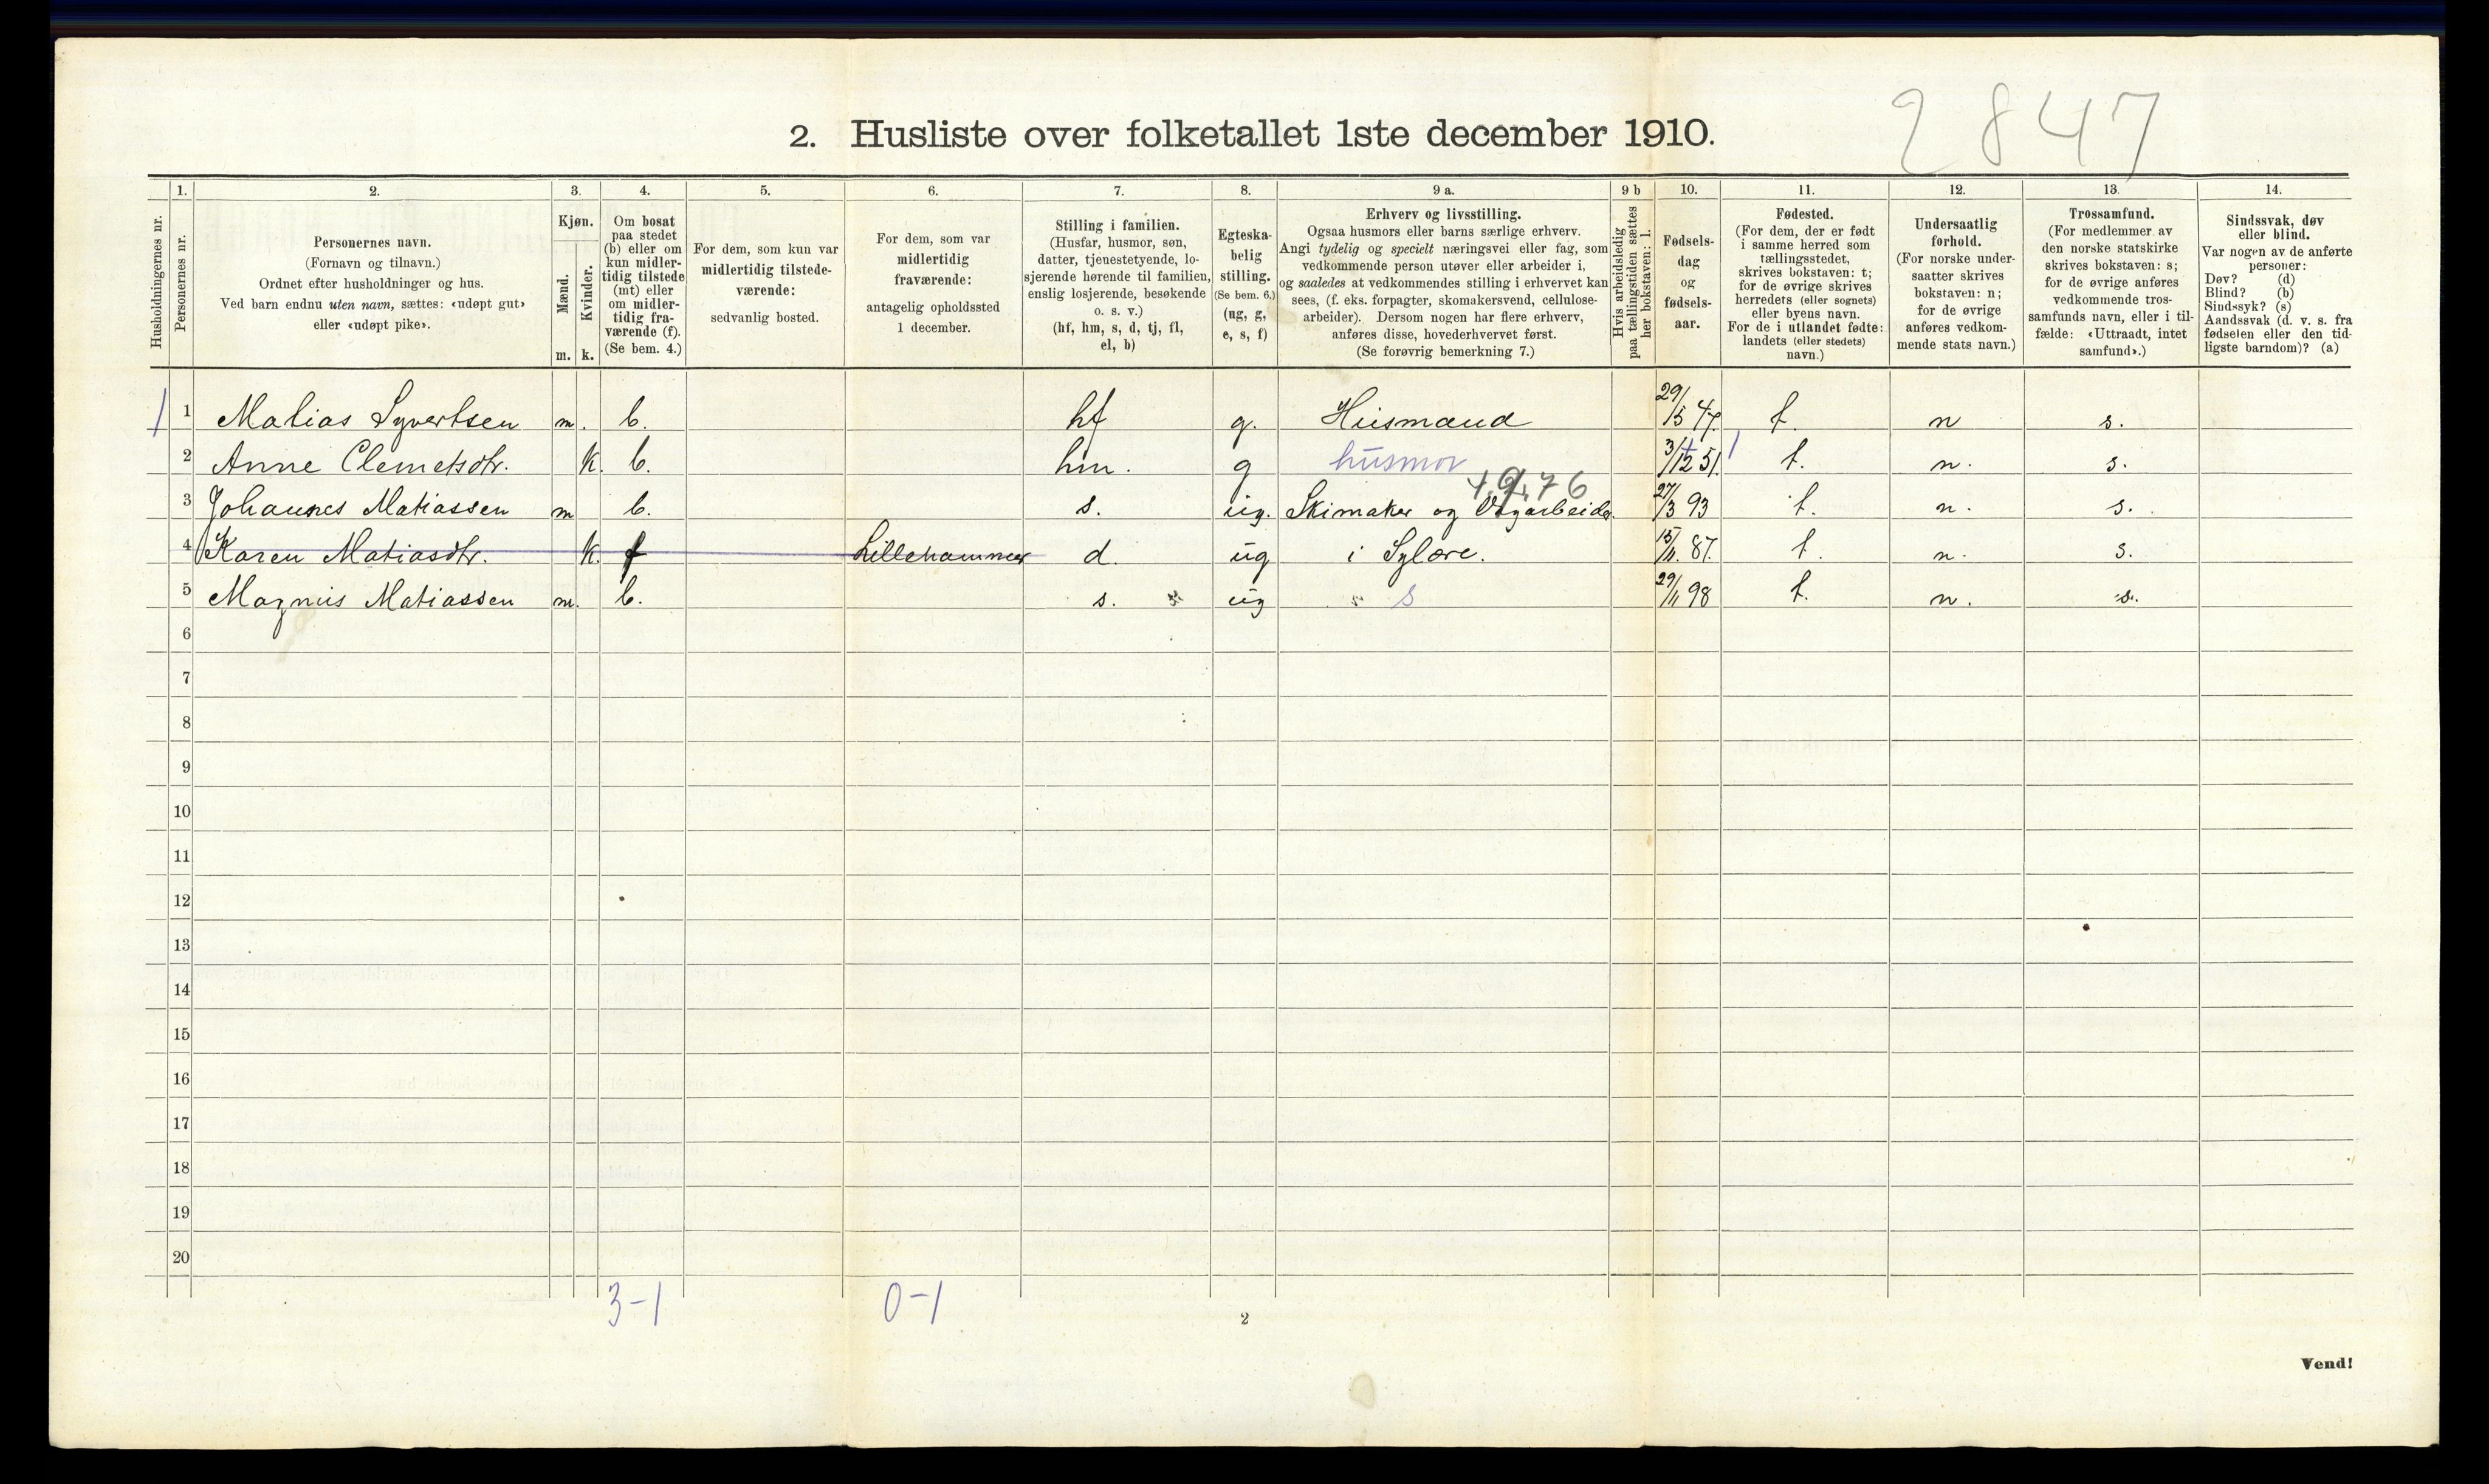 2847
2. Husliste over folketallet 1ste december 1910.
Husholdningernes nr.
1.
Personernes nr.
2.
Personernes navn.
(Fornavn og tilnavn.)
Ordnet efter husholdninger og hus.
Ved barn endnu uten navn, sættes: «udøpt gut»
eller «udøpt pike».
3.
Kjøn.
Mænd.
Kvinder.
m. k.
4.
Om bosat
paa stedet
(b) eller om
kun midler-
tidig tilstede
(mt) eller
om midler-
tidig fra-
værende (f).
(Se bem. 4.)
5.
For dem, som kun var
midlertidig tilstede-
værende:
sedvanlig bosted.
6.
For dem, som var
midlertidig
fraværende:
antagelig opholdssted
1 december.
7.
Stilling i familien.
(Husfar, husmor, søn,
datter, tjenestetyende, lo-
sjerende hørende til familien,
enslig losjerende, besøkende
o. s. v.)
(hf, hm, s, d, tj, fl,
el, b)
8.
Egteska-
belig
stilling.
(Se bem. 6.)
(ug, g,
e, s, f)
9 a.
Erhverv og livsstilling.
Ogsaa husmors eller barns særlige erhverv.
Angi tydelig og specielt næringsvei eller fag, som
vedkommende person utøver eller arbeider i,
og saaledes at vedkommendes stilling i erhvervet kan
sees, (f. eks. forpagter, skomakersvend, cellulose-
arbeider). Dersom nogen har flere erhverv,
anføres disse, hovederhvervet først.
(Se forøvrig bemerkning 7.)
9 b
Hvis arbeidsledig
paa tællingstiden sættes
her bokstaven: l.
10.
Fødsels-
dag
og
fødsels-
aar.
11.
Fødested.
(For dem, der er født
i samme herred som
tællingsstedet,
skrives bokstaven: t;
for de øvrige skrives
herredets (eller sognets)
eller byens navn.
For de i utlandet fødte:
landets (eller stedets)
navn.)
12.
Undersaatlig
forhold.
(For norske under-
saatter skrives
bokstaven: n;
for de øvrige
anføres vedkom-
mende stats navn.)
13.
Trossamfund.
(For medlemmer av
den norske statskirke
skrives bokstaven: s;
for de øvrige anføres
vedkommende tros-
samfunds navn, eller i til-
fælde: «Uttraadt, intet
samfund».)
14.
Sindssvak, døv
eller blind.
Var nogen av de anførte
personer:
Døv? (d)
Blind? (b)
Sindssyk? (s)
Aandssvak (d. v. s. fra
fødselen eller den tid-
ligste barndom)? (a)
1 1 Matias Syvertsen m. b. hf g. Husmand 29/5 47. t. n s.
2 Anne Clemetsdtr. k. b. hm. g husmor 3/12 51. t. n. s.
3 Johannes Matiassen m b. s. ug. Skimaker og Vegarbeider. 27/3 93 t. n. s.
4 Karen Matiasdtr. k. f Lillehammer d. ug i Sylære. 15/11. 87. t. n. s.
5 Magnus Matiassen m. b. s. ug s 29/11 98 t. n. s.
6
7
8
9
10
11
12
13
14
15
16
17
18
19
20
3-1 0-1
2
Vend!